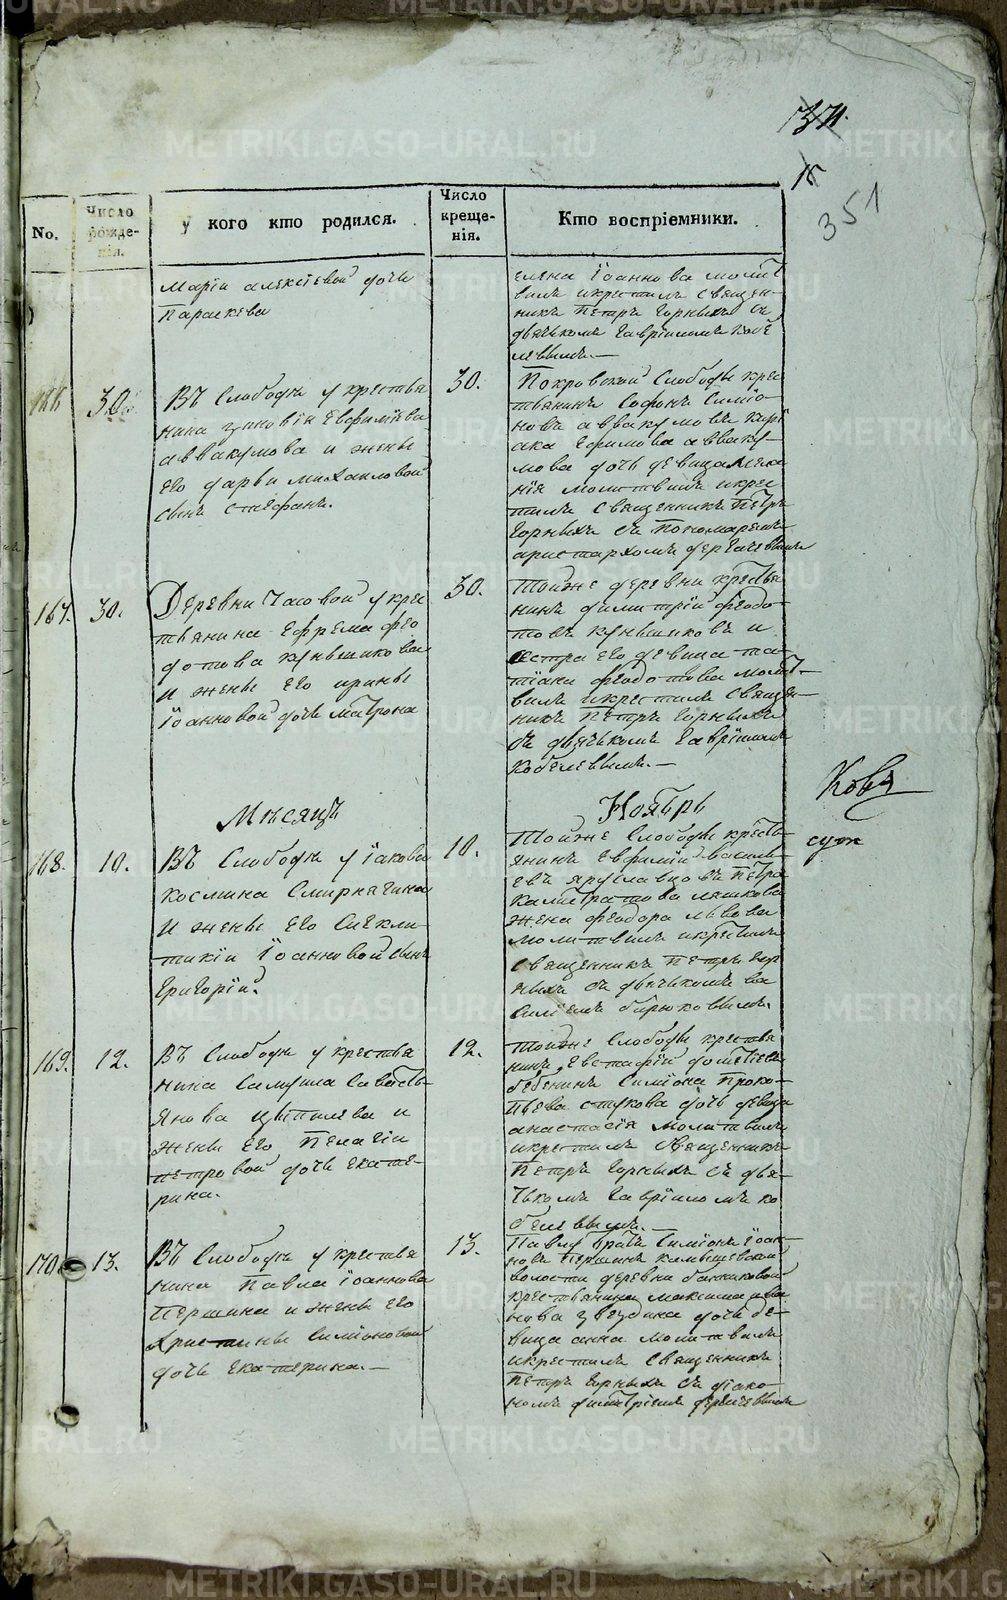 371.
15
351
No.
Число рожде-нія.
у кого кто родился.
Число креще-нія.
Кто воспріемники.
Маріи алексіевой дочь
Параскева
елена Іоаннова молит
вилъ икрестилъ Священ-
никъ Петръ Горныхъ съ
дьячькомъ Гавріиломъ Кобе
левымъ.—
166
30.
Въ Слободѣ у крестья
нина зиновія Евфиміева
аввакумова и жены
его дарьи михаиловой
сынъ стефанъ.
30.
Покровской Слободы крес
тьянинъ Софонъ Симіо
новъ аввакумовъ кирі
ака Ефимова авваку-
мова дочь девица
молитвилъ икрес
тилъ Священникъ Петръ
Горныхъ съ Пономаремъ
аристархомъ дергачевымъ
167.
30.
Деревни Часовой у крес
тьянина Ефрема фео
дотова кунщикова
и жены его ирины
Іоанновой дочь матрона
30.
Тойже деревни крестья
нинъ димитрій феодо-
товъ кунщиковъ и
сестра его девица та-
тіана феодотова молит-
вилъ икрестилъ Священ-
никъ Петръ Горныхъ
съ дьячькомъ Гавріиломъ
Кобелевымъ.—
Мѣсяцъ
Ноябрь
168.
10.
Въ Слободѣ у Іакова
космина Смирнягина
и жены его Синкли-
тикіи Іоанновой сынъ
Григорій.
10.
Тойже Слободы кресть-
янинъ Евфимій васильи-
евъ ярусланцовъ Петра
калистратова
жена феодора львова
молитвилъ икрестилъ
Священникъ Петръ Гор
ныхъ съ дьячькомъ ва
силіемъ бирюковымъ.
169.
12.
Въ Слободѣ у крестья
нина Самуила Савасть-
янова Цыпилева и
жены его Пелагіи
петровой дочь екате-
рина.
12.
Тойже Слободы крестья
нинъ Евстафій
бебенинъ Симіона Проко-
пьева стукова дочь девица
анастасія молитвилъ
икрестилъ Священникъ
Петръ Горныхъ съ дья-
чькомъ Гавріиломъ ко
белевымъ.
170.
13.
Въ Слободѣ у крестья
нина Павла Іоаннова
Першина и жены его
Христины Симіоновой
дочь екатерина.—
13.
Павла братъ Симіонъ Іоан-
новъ Першинъ камышевской
волости деревни баннаковой
крестьянина максима ива
нова звездина дочь де-
вица анна молитвилъ
икрестилъ Священникъ
Петръ Горныхъ съ діако-
номъ димитріемъ дергачевымъ